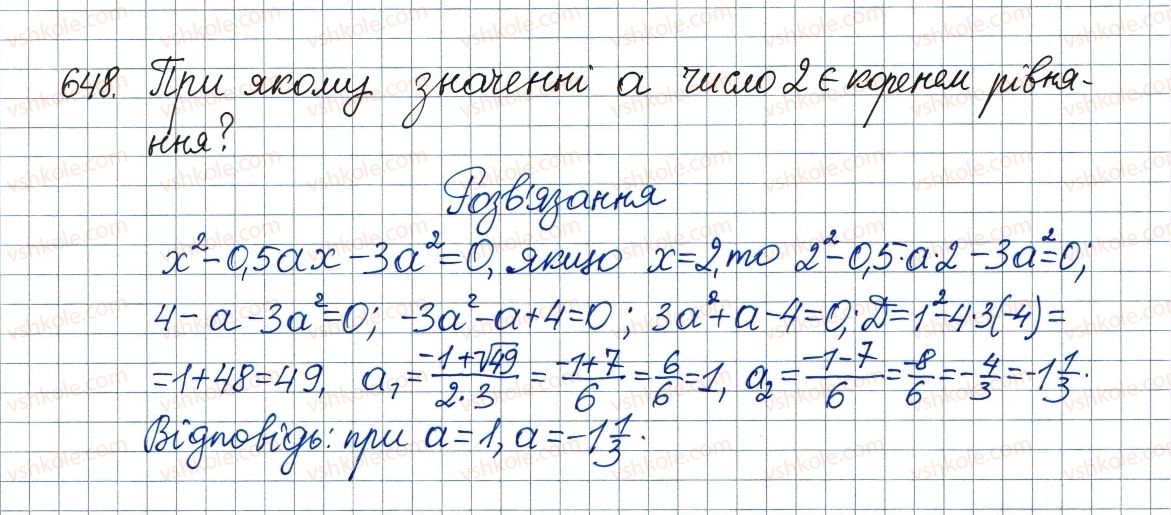 648. При якому значенні а число 2 є коренем рівня-
ння?
Розв'язання
x²-0,5ax-3a²=0, якщо x=2, то 2²-0,5·a·2-3a²=0;
4-a-3a²=0; -3a²-a+4=0; 3a²+a-4=0; D=1²-4·3(-4)=
=1+48=49, a₁=(-1+√49)/(2·3)=(-1+7)/6=6/6=1, a₂=(-1-7)/6=-8/6=-4/3=-1 1/3.
Відповідь: при a=1, a=-1 1/3.